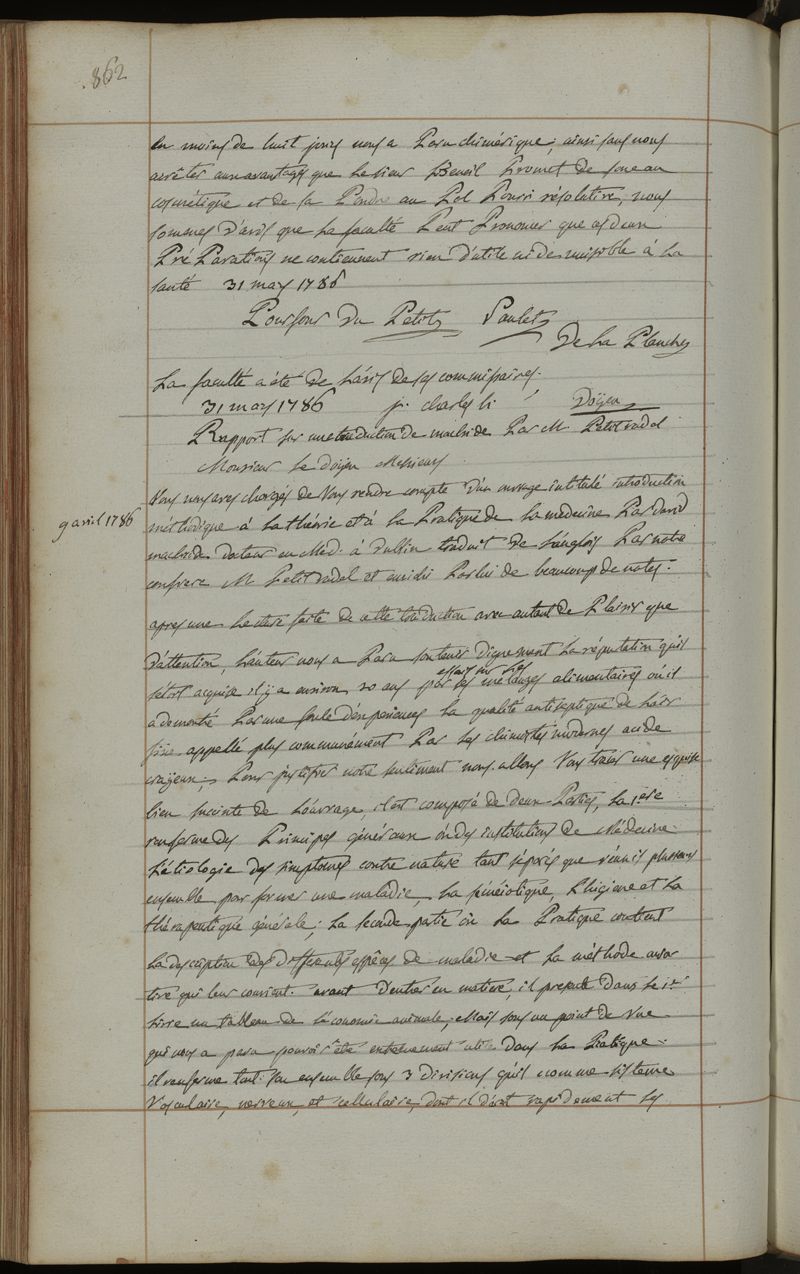 862
en moins de huit jours nous a Paru chimérique; ainsi sans nous
arrêter aux avantages que Le sieur Promet de son eau
cosmétique et de sa Poudre au Pol Pourri résolutive, nous
sommes d'avis que La faculté Peut Prononcer que ces deux
Pré Parations ne contiennent rien d'utile ni de nuisible à La
santé 31 may 1786
Pourfour Du Petit Paulet
De La Planche
La faculté a été De L'avis de ses commissaires.
31 may 1786 j. charles Doÿen
Rapport sur une traduction de macbride Par M Petitradel
Monsieur Le Doÿen Messieurs
9 avril 1786
Vous nous avez chargés de Vous rendre compte D'un ouvrage intitulé introduction
méthodique à La théorie et à La Pratique de La médecine Par David
macbride Docteur en Méd. à Dublin traduit De L'anglois Par notre
confrere M Petitradel et enrichi Par lui de beaucoup de notes.
apres une Lecture faite de cette traduction avec autant De Plaisir que
D'attention, L'auteur nous a Paru soutenir Dignement La réputation qu'il
s'étoit acquise il y a environ 20 ans par ses essais sur Les mélanges alimentaires où il
a démontré Par une foule d'expériences La qualité antiseptique de L'air
fixe appellé plus communément Par Les chimistes modernes acide
crayeux; Pour justifier notre sentiment nous allons Vous tracer une esquisse
bien succinte de L'ouvrage, il est composé de Deux Parties, La 1ere
renferme des Principes généraux ou des institutions De Médecine
L'étiologie Des simptomes contre nature tant séparés que réunis plusieurs
ensemble pour former une maladie, La séméiotique, L'higiene et La
thérapeutique générale; La seconde partie ou La Pratique contient
La description Des Differentes espèces de maladie et La méthode curative
tive qui leur convient. avant D'entrer en matiere, il presente Dans Le 1er
Livre un tableau de L'économie animale; Mais sous un point de vue
qui nous a paru pouvoir être extremement utile Dans La Pratique.
il renferme tout son ensemble sous 3 Divisions qu'il nomme sisteme
Vasculaire, nerveux, et cellulaire, dont il décrit rapidement Les